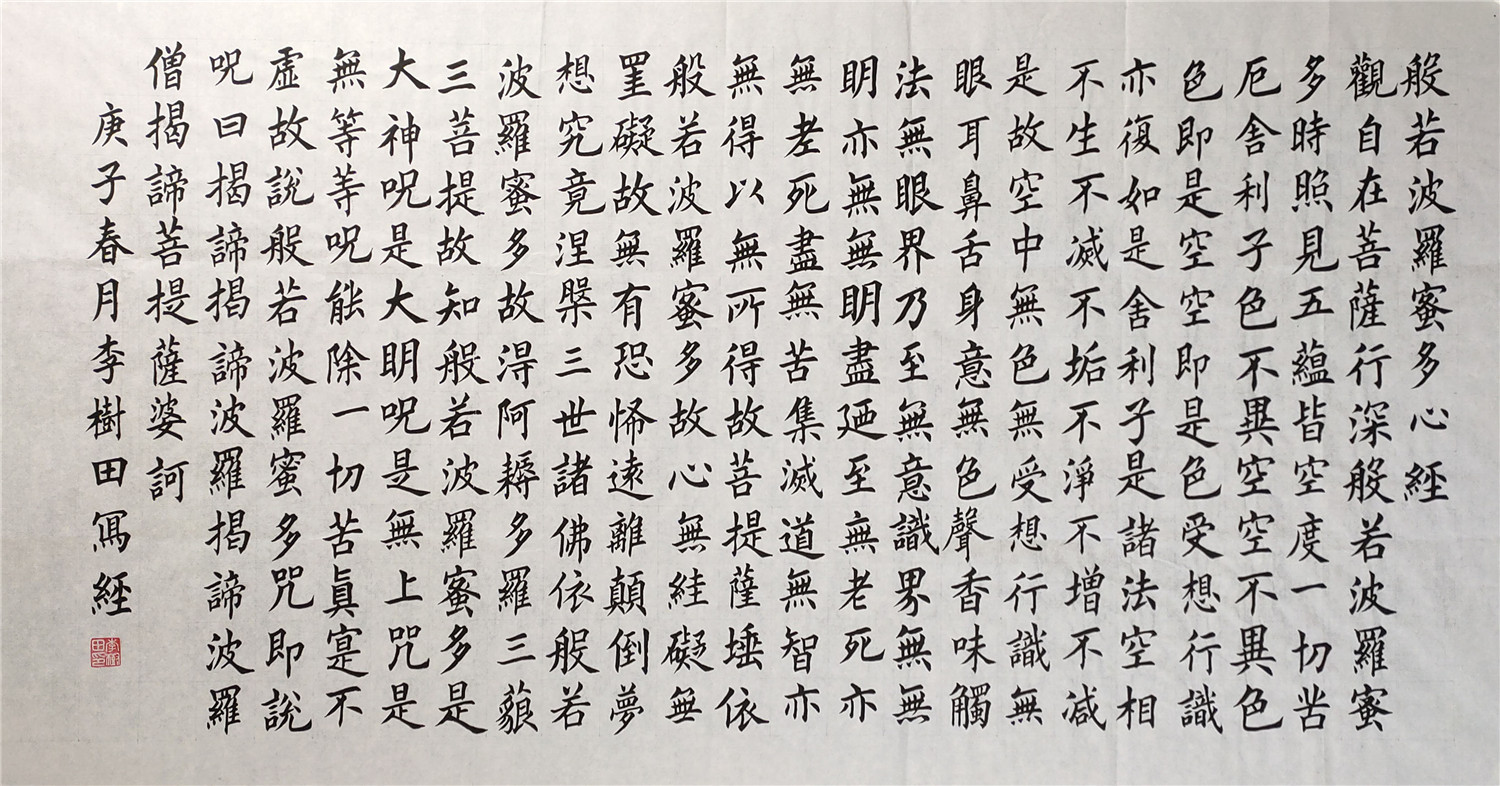 般若波羅蜜多心經
觀自在菩薩行深般若波羅蜜
多時照見五蘊皆空度一切苦
厄舍利子色不異空空不異色
色即是空空即是色受想行識
亦復如是舍利子是諸法空相
不生不滅不垢不淨不增不減
是故空中無色無受想行識無
眼耳鼻舌身意無色聲香味觸
法無眼界乃至無意識界無無
明亦無無明盡廼至無老死亦
無老死盡無苦集滅道無智亦
無得以無所得故菩提薩埵依
般若波羅蜜多故心無絓礙無
罣礙故無有恐怖遠離顛倒夢
想究竟涅槃三世諸佛依般若
波羅蜜多故得阿耨多羅三藐
三菩提故知般若波羅蜜多是
大神呪是大明呪是無上咒是
無等等呪能除一切苦真寔不
虛故說般若波羅蜜多咒即說
呪曰揭諦揭諦波羅揭諦波羅
僧揭諦菩提薩婆訶
庚子春月李樹田寫經
李樹田印